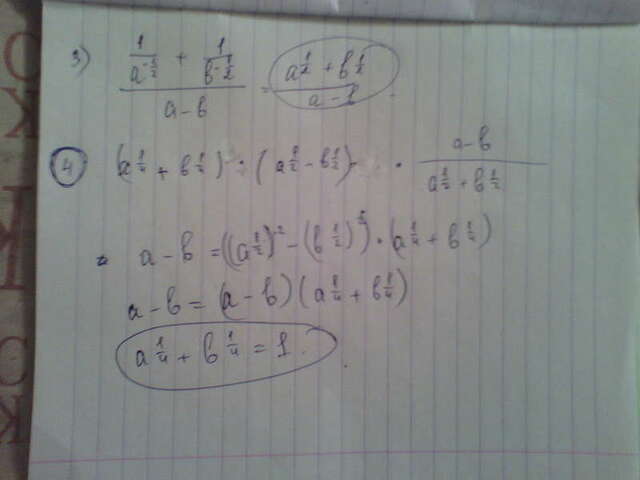 3) (1/a^{-1/2} + 1/b^{-1/2}) / (a-b) = (a^{1/2} + b^{1/2}) / (a-b)
4) (a^{1/4} + b^{1/2}) : (a^{1/2} - b^{1/2}) · (a-b) / (a^{1/2} + b^{1/2})
a-b = ((a^{1/2})^2 - (b^{1/2})^2) · (a^{1/4} + b^{1/4})
a-b = (a-b)(a^{1/4} + b^{1/4})
a^{1/4} + b^{1/4} = 1.